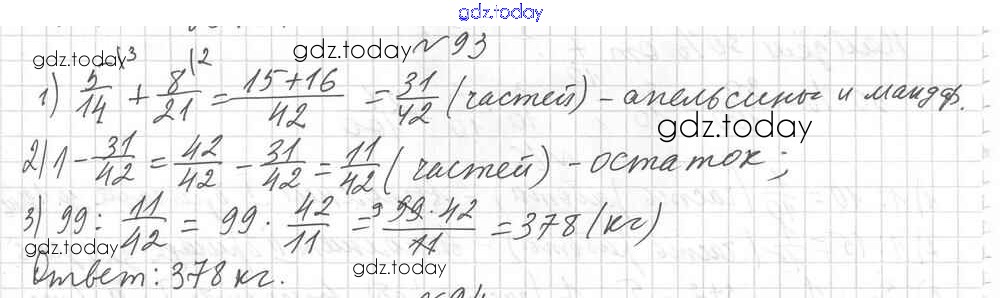 gdz.today
gdz.today № 93
gdz.today
1) 5/14 |3 + 8/21 |2 = 15+16/42 = 31/42 (частей) - апельсины и мандар.
gdz.today
2) 1 - 31/42 = 42/42 - 31/42 = 11/42 (частей) - остаток;
3) 99 : 11/42 = 99 · 42/11 = 9 99 · 42/11 = 378 (кг)
gdz.today
Ответ: 378 кг.
gdz.today